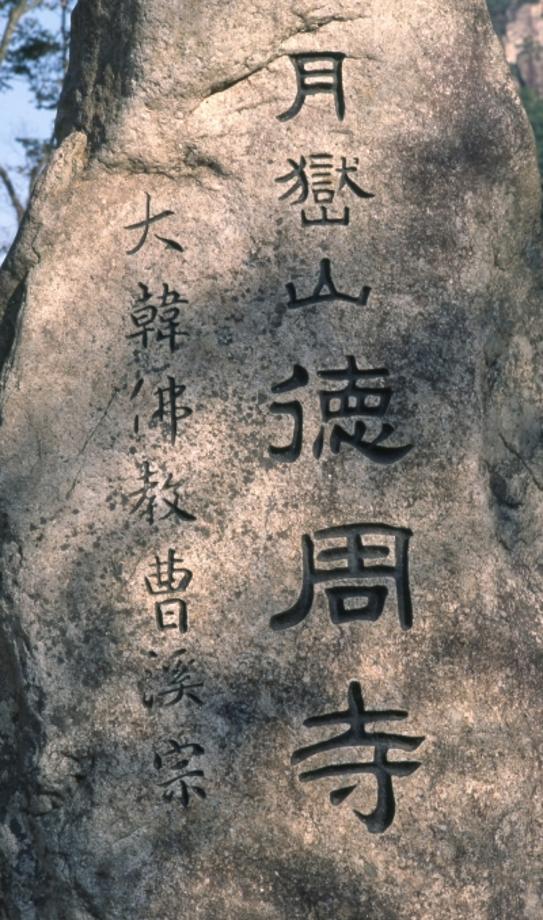 月嶽山德周寺
大韓佛教曹溪宗